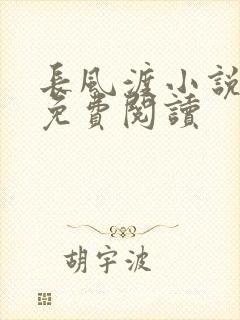 長風渡小説
免費閱讀
胡宇波